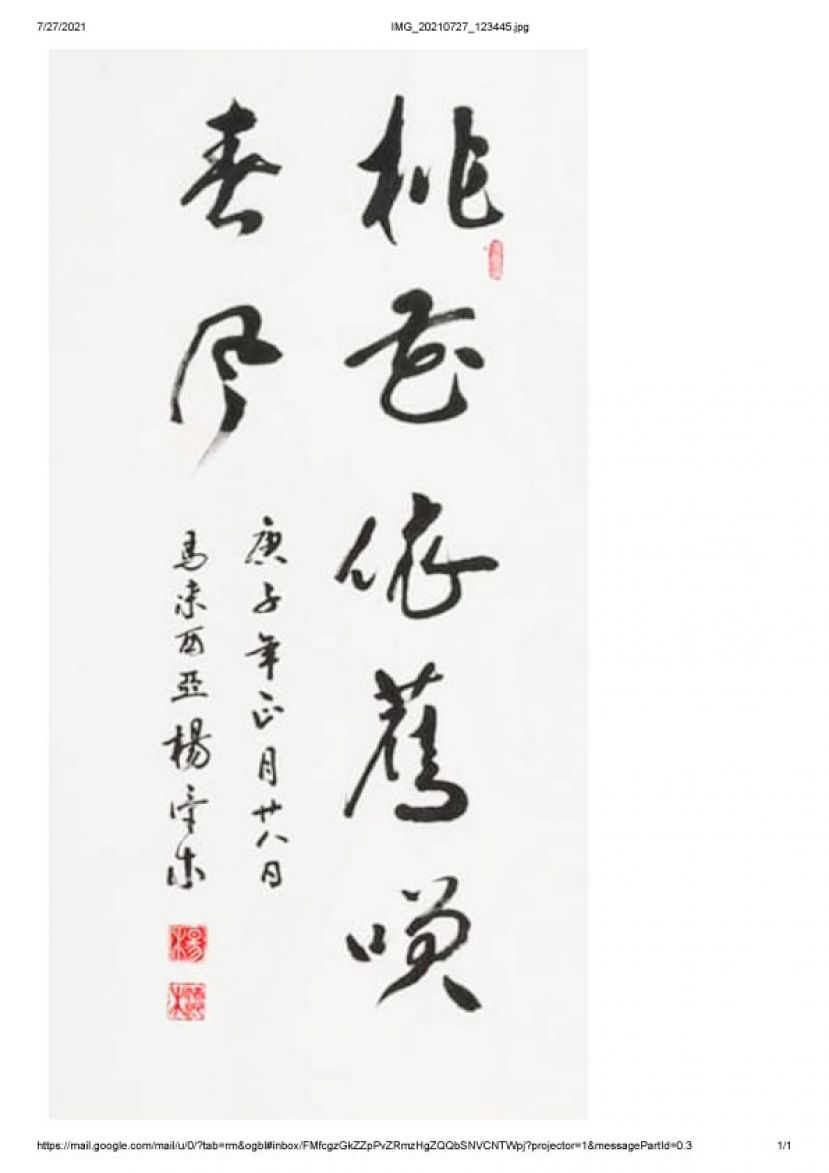 7/27/2021 IMG_20210727_123445.jpg
桃花依舊咲
春風
庚子年正月廿八日
馬來西亞楊
楊
https://mail.google.com/mail/u/0/?tab=rm&ogbl#inbox/FMfcgzGkZZpPvZRmzHgZQQbSNVCNTWpj?projector=1&messagePartId=0.3 1/1